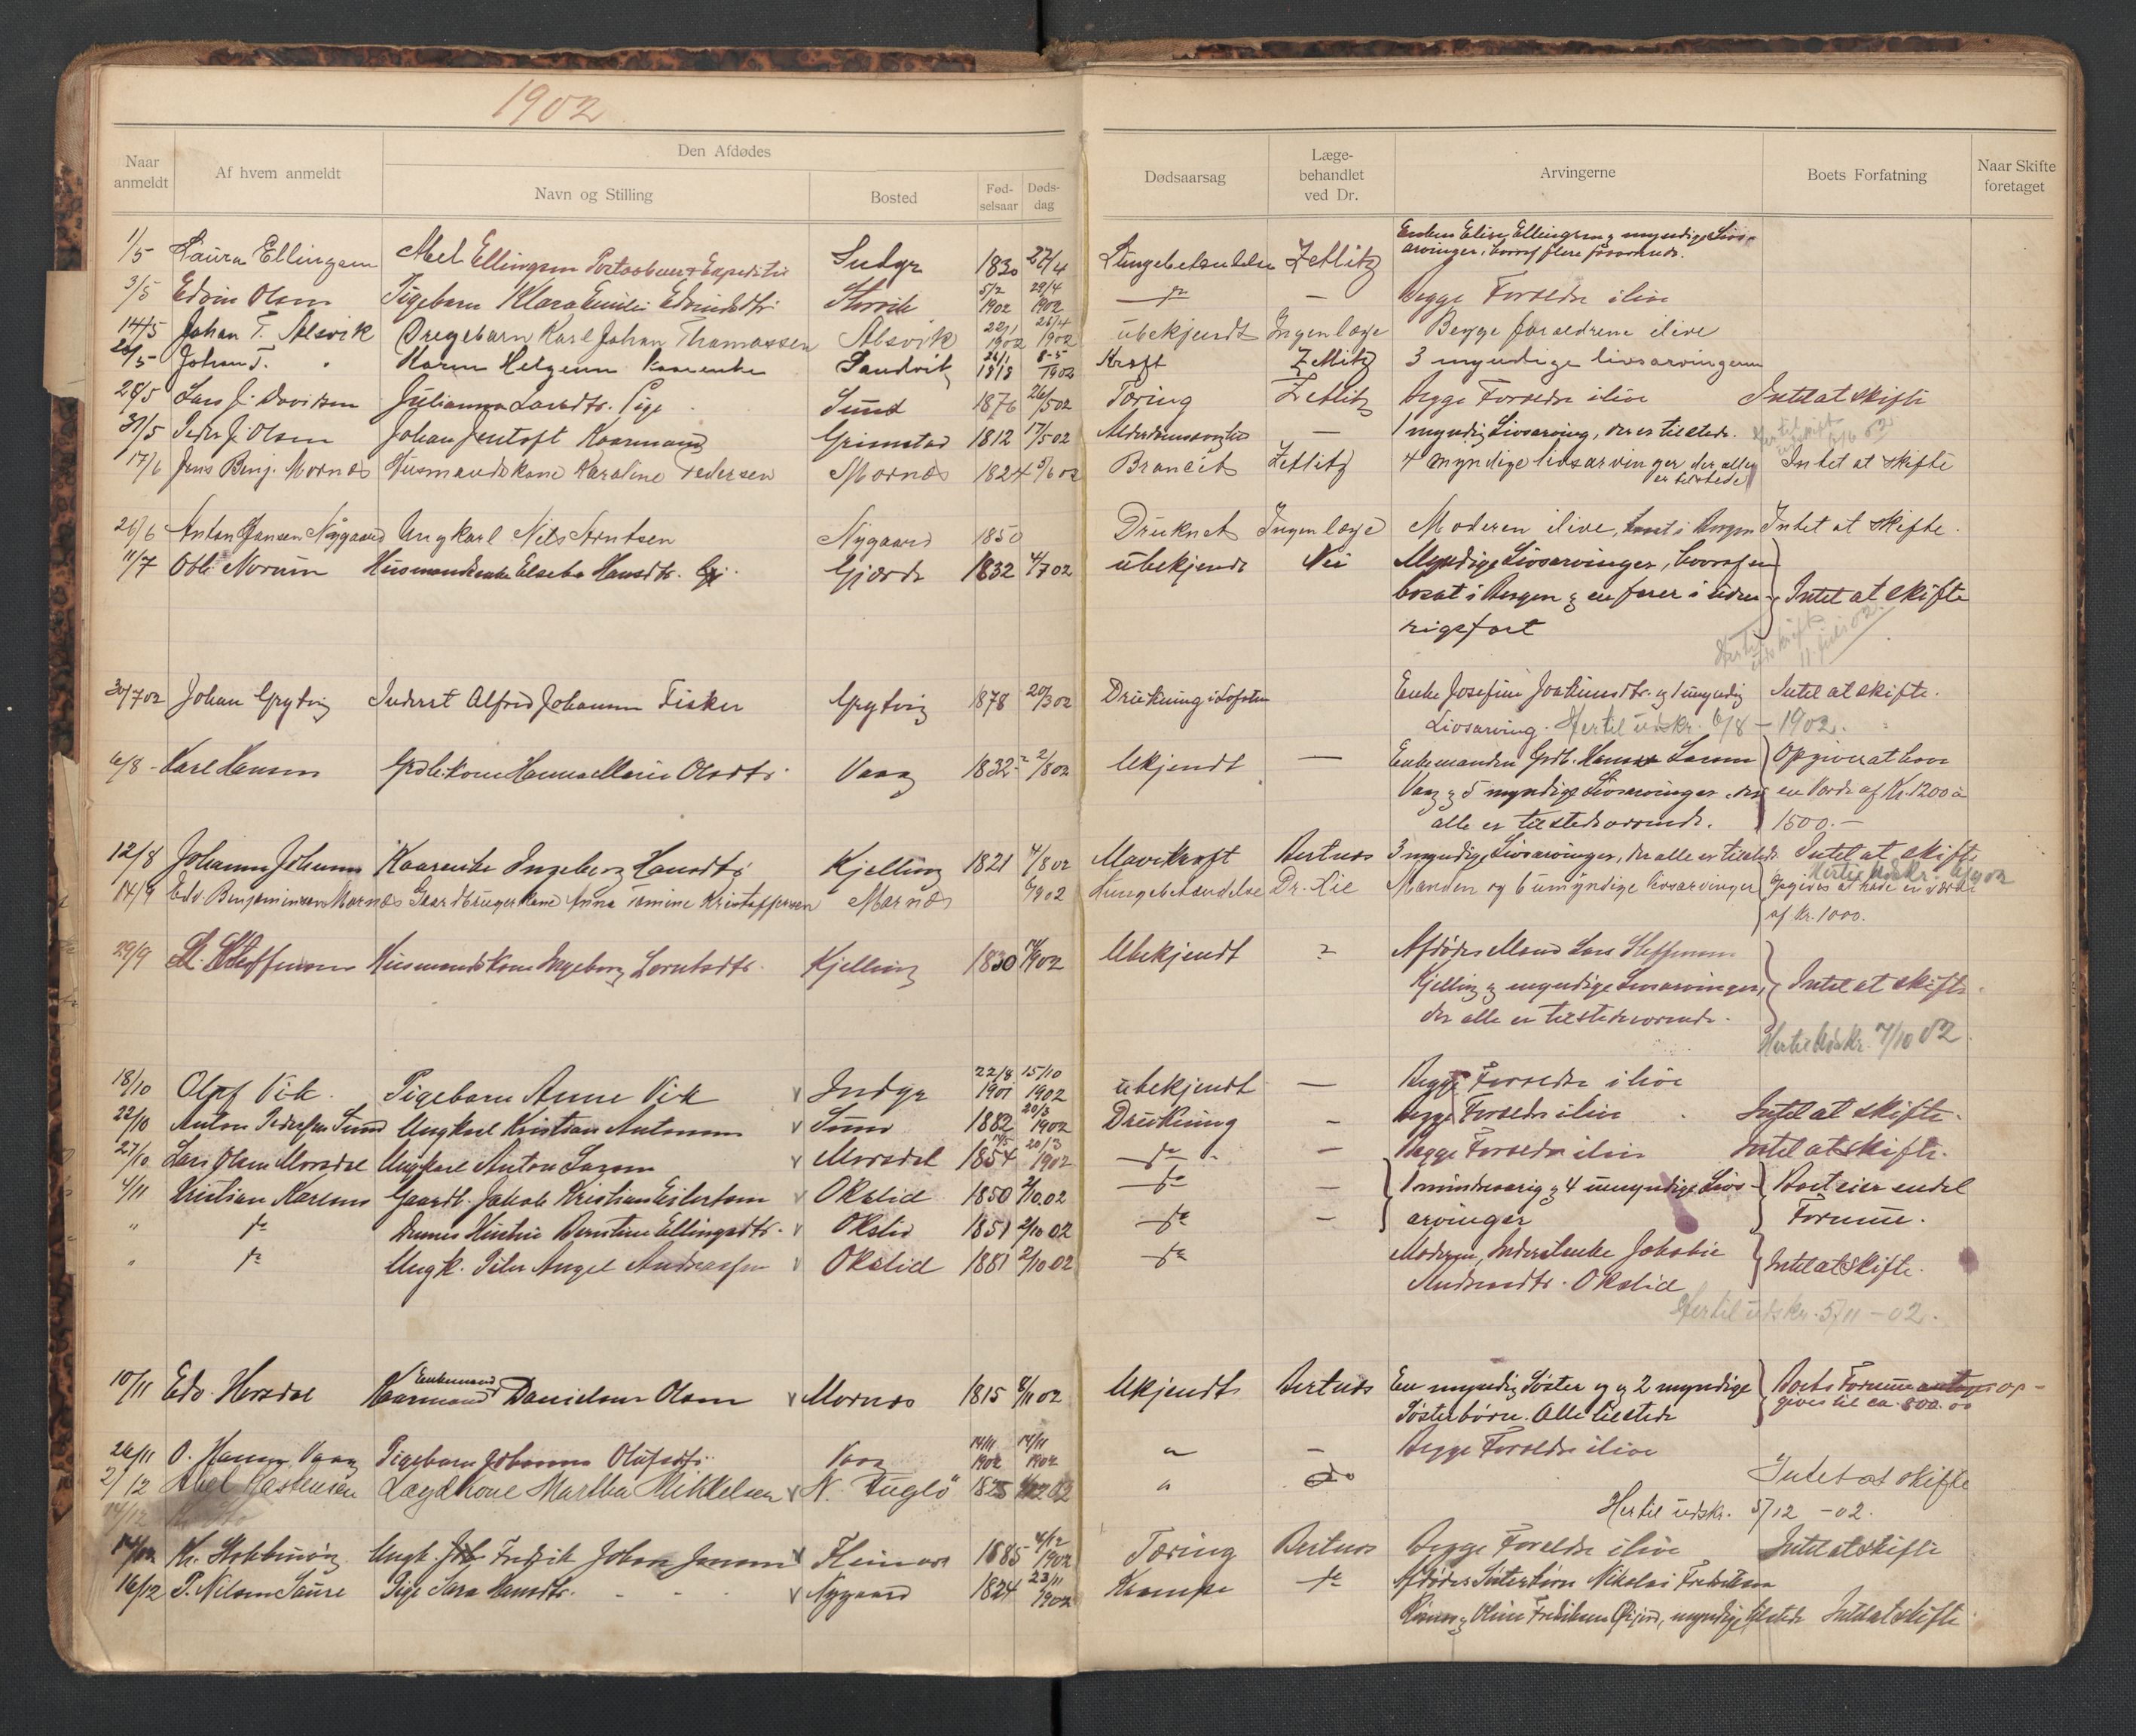 1902
Naar anmeldt
Af hvem anmeldt
Den Afdødes
Navn og Stilling
Bosted
Fød-selsaar
Døds-dag
Dødsaarsag
Læge-behandlet ved Dr.
Arvingerne
Boets Forfatning
Naar Skifte foretaget
1/5 Laura Ellingsen Abel Ellingsen 1830 27/4 Zetlitz Enken Elise Ellingsen & myndige Livs-
arvinger, hvoraf flere
3/5 Edvin Olsen Pigebarn Klara Emilie Storvik 5/2 1902 29/4 1902 — Begge Forældre ilive
14/5 Johan T. Alsvik Drengebarn Karl Johan Thomassen Alsvik 22/1 1902 1902 ubekjendt Ingen læge Begge forældrene ilive
Johan T. " Karen Helgesen Sandvik 1818 8-5 1902 Kræft Zetlitz 3 myndige livsarvinger
28/5 Lars J. Davidsen Julianna Pige Sund 1876 26/5 02 Tæring Zetlitz Begge Forældre ilive Intet at skifte
31/5 Peder J. Olsen Johan Jentoft Kaarmand Grimstad 1812 17/5 02 — 1 myndig Livsarving, der er tilstede.
17/6 Jens Benj. Mornæs Husmandskone Karoline Pedersen Mornæs 1824 5/6 02 Zetlitz 4 myndige livsarvinger der alle er tilstede Intet at skifte
26/6 Anton Hansen Nygaard Ungkarl Nils Arntsen Nygaard 1850 Druknet Ingen læge Moderen ilive, Intet at skifte.
11/7 Otli Norum Elseba Hansdtr. Gj. Gjærde 1832 4/7 02 ubekjendt Nei Myndige Livsarvinger, hvoraf en
bosat i Bergen & en farer i uden-
rigsfart
Intet at skifte
Hertil udskrift 11. juli 02.
30/7 02 Johan Grytvig Inderst Alfred Johansen Fisker Grytvig 1878 20/3 02 Drukning i Lofoten Enke Josefine og 1 umyndig Intet at skifte.
Livsarving. Hertil udskr. 6/8 - 1902.
6/8 Karl Hansen Hanna Marie Olsdtr. Vaag 1832 2/8 02 Ukjendt — Enkemanden Grdb. Hans Larsen
Vaag & 5 myndige Livsarvinger, der
alle er tilstedeværende.
Opgiver at have
en Værdi af Kr. 1200 à
1500.-
12/8 Johannes Johansen Kaarenke Ingeborg Hansdtr. Kjelling 1821 4/8 02 Mavekræft Bertnes 3 myndige Livsarvinger, der alle er tilstede. Intet at skifte
14/9 Edv. Benjaminsen Mornæs Gaardbrugerkone Anna Tomine Kristoffersen Mornæs Lungebetændelse Dr. Lie Manden og 6 umyndige livsarvinger Opgives at have en værdi
af Kr. 1000.
29/9 L. Steffensen Husmandskone Ingeborg Kjelling 1830 Ubekjendt Afdødes Mand Lars Steffensen
Kjelling & myndige Livsarvinger,
der alle er tilstedeværende.
Intet at skifte.
Hertil Udskr. 7/10 02
18/10 Oluf Vik. Pigebarn Anne Vik v Indyr 22/8 1901 15/10 1902 ubekjendt — Begge Forældre ilive
22/10 Anton Pedersen Sund Ungkarl Kristian Antonsen v Sund 1882 20/3 1902 Drukning — Begge Forældre ilive Intet at skifte.
27/10 Lars Olsen Morsdal Ungkarl Anton Larsen v Morsdal 1854 20/3 1902 — Begge Forældre ilive Intet at skifte.
4/11 Kristian Karlsen Gaardb. Jakob Kristian Eilertsen v Okslid 1850 2/10 02 — 1 mindreaarig & 4 umyndige Livs-
arvinger
Boet eier endel
Formue.
" do Dennes Hustru Berntine Ellingsdtr. v Okslid 1851 2/10 02 do —
" do Ungk. Peter Angel Andreassen v Okslid 1881 2/10 02 do Moderen, Inderstenke Jakobie
Andersdtr. Okslid
Intet at skifte.
Hertil udskr. 5/11 - 02.
10/11 Edv. Horsdal Enkemand Kaarmand Danielsen Olsen v Mornæs 1815 8/11 02 Ukjendt Bertnes En myndig Søster og 2 myndige
Søsterbørn. Alle tilstede
Boets Formue op-
gives til ca. 800.00
26/11 O. Hansen Vaag Pigebarn Johanna Olufsdtr. Vaag 14/11 1902 14/11 1902 " — Begge Forældre ilive
2/12 Abel Lægdkone Martha Mikkelsen v N. Fuglø 02 " do Intet at skifte
Hertil udskr. 5/12 - 02.
Ungk. Fredrik Johan Jensen v 1885 4/12 1902 Tæring Bertnes Begge Forældre ilive Intet at skifte
16/12 P. Nilsen Saure Pige Sara Hansdtr. v Nygaard 1824 23/11 1902 Krampe do Afdødes Søsterbørn Nikolai Fredriksen
& Oline Fredriksen myndige, tilstede Intet at skifte